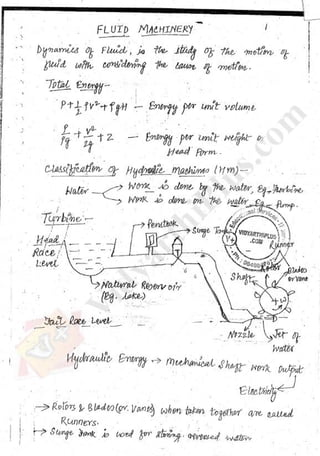 FLUID MACHINERY
1
Dynamics of Fluid, is the study of the motion of
fluid with considering the cause of motion.
Total Energy -
P + 1/2 ρv² + ρgH - Energy per unit volume
P/ρg + v²/2g + z - Energy per unit weight or
Head Form.
Classification of Hydraulic Machines (HM) :-
Water
→ Work is done by the water, Eg - turbine
→ Work is done on the water, Eg - Pump.
Turbine :-
Penstock
Surge Tank
VIDYARTHIPLUS
.COM
V+
Runner
Head
Race
Level
Shaft
Rotor
Blades
or vane
→ Natural Reservoir
(Eg. lake)
Tail Race Level
Nozzle
Jet of
Water
Hydraulic Energy → Mechanical Shaft work output
Electricity
→ Rotors & Blades (or. Vanes) when taken together are called
Runners.
→ Surge tank is used for storing water